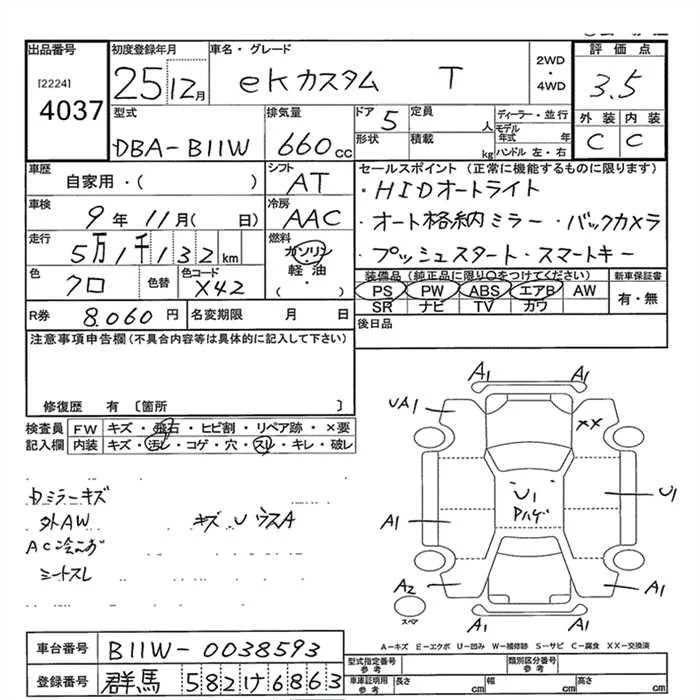 出品番号
[2224]
4037
初度登録年月
25 12月
車名・グレード
ekカスタム T
2WD
・
4WD
評価点
3.5
外装 内装
C C
型式
DBA-B11W
排気量
660cc
ドア 5
形状
定員 人
積載 kg
ディーラー・並行
モデル年式 年
ハンドル 左・右
車歴
自家用・( )
シフト
AT
車検
9年11月( 日)
冷房
AAC
走行
5万1千132km
燃料
ガソリン
・
軽油
( )
色
クロ
色替
色コード
X42
セールスポイント (正常に機能するものに限ります)
・HIDオートライト
・オート格納ミラー・バックカメラ
・プッシュスタート・スマートキー
装備品(純正品に限り○をつけてください)
PS PW ABS エアB AW
SR ナビ TV カワ
新車保証書
有・無
後日品
R券 8.060円
名変期限 月 日
注意事項申告欄(不具合内容等は具体的に記入して下さい)
修復歴 有 〔箇所 〕
検査員記入欄
FW キズ・飛石・ヒビ割・リペア跡・×要
内装 キズ・汚レ・コゲ・穴・スレ・キレ・破レ
ミラーキズ
外AW キズ
シートスレ
A1 A1
UA1 XX
U1
U1
Pハゲ
A1
A2 A1
スペア
A1 A1
A－キズ E－エクボ U－凹み W－補修跡 S－サビ C－腐食 XX－交換済
車台番号 B11W-0038593
登録番号 群馬 582け6863
型式指定番号 参考
類別区分番号 参考
車庫証明用 参考
長さ cm
幅 cm
高さ cm